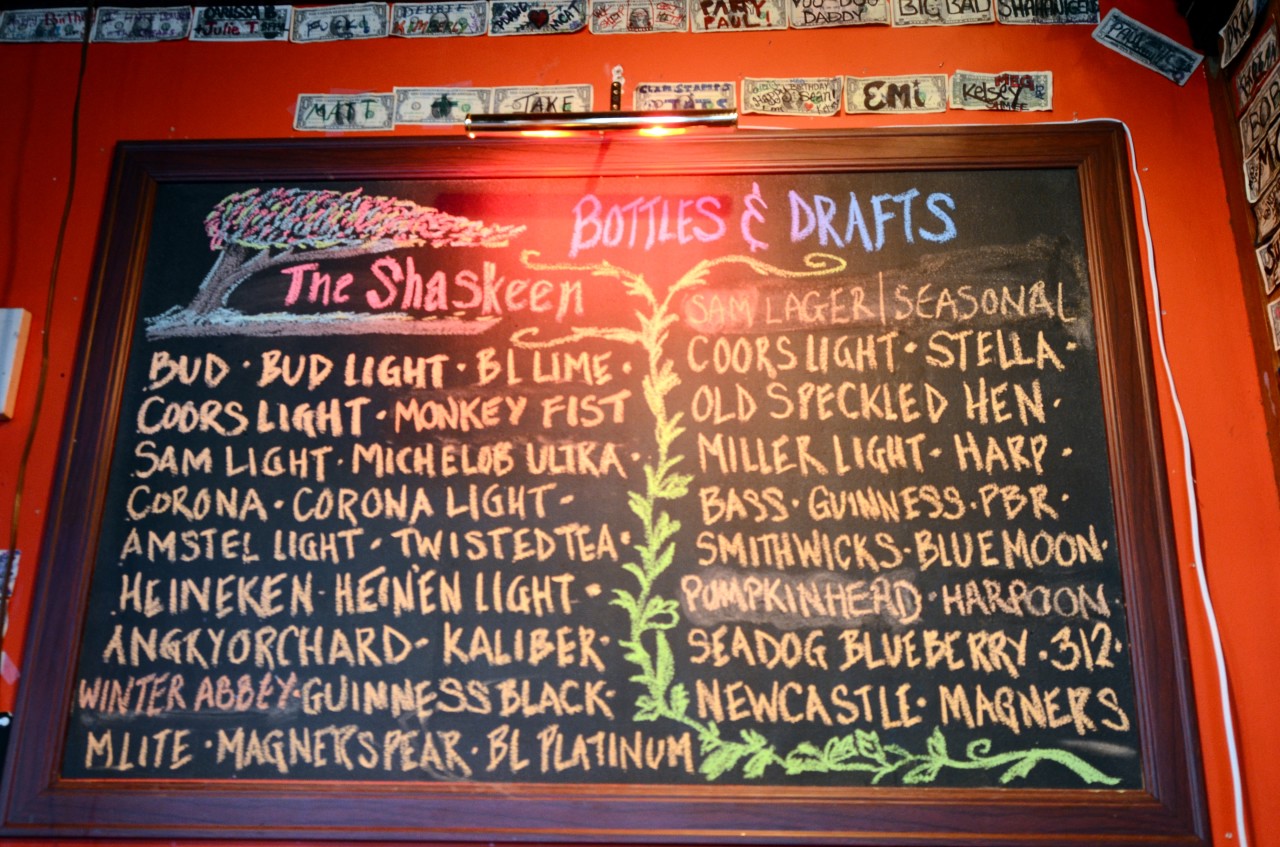 CARISSA
Julie T.
DEBBIE
KIMBERLY
PARTY
PAUL!
VOO DOO
DADDY
BIG BAD
MATT
TAKE
EMi
MEG
Kelsey
BOTTLES & DRAFTS
The Shaskeen
BUD · BUD LIGHT · BL LIME ·
COORS LIGHT · MONKEY FIST
SAM LIGHT · MICHELOB ULTRA ·
CORONA · CORONA LIGHT ·
AMSTEL LIGHT · TWISTED TEA ·
HEINEKEN · HEIN'EN LIGHT ·
ANGRYORCHARD · KALIBER ·
WINTER ABBEY · GUINNESS BLACK ·
M LITE · MAGNERS PEAR · BL PLATINUM
SAM LAGER | SEASONAL
COORS LIGHT · STELLA ·
OLD SPECKLED HEN ·
MILLER LIGHT · HARP ·
BASS · GUINNESS · PBR ·
SMITHWICKS · BLUE MOON ·
PUMPKINHEAD · HARPOON ·
SEADOG BLUEBERRY · 312 ·
NEWCASTLE · MAGNERS